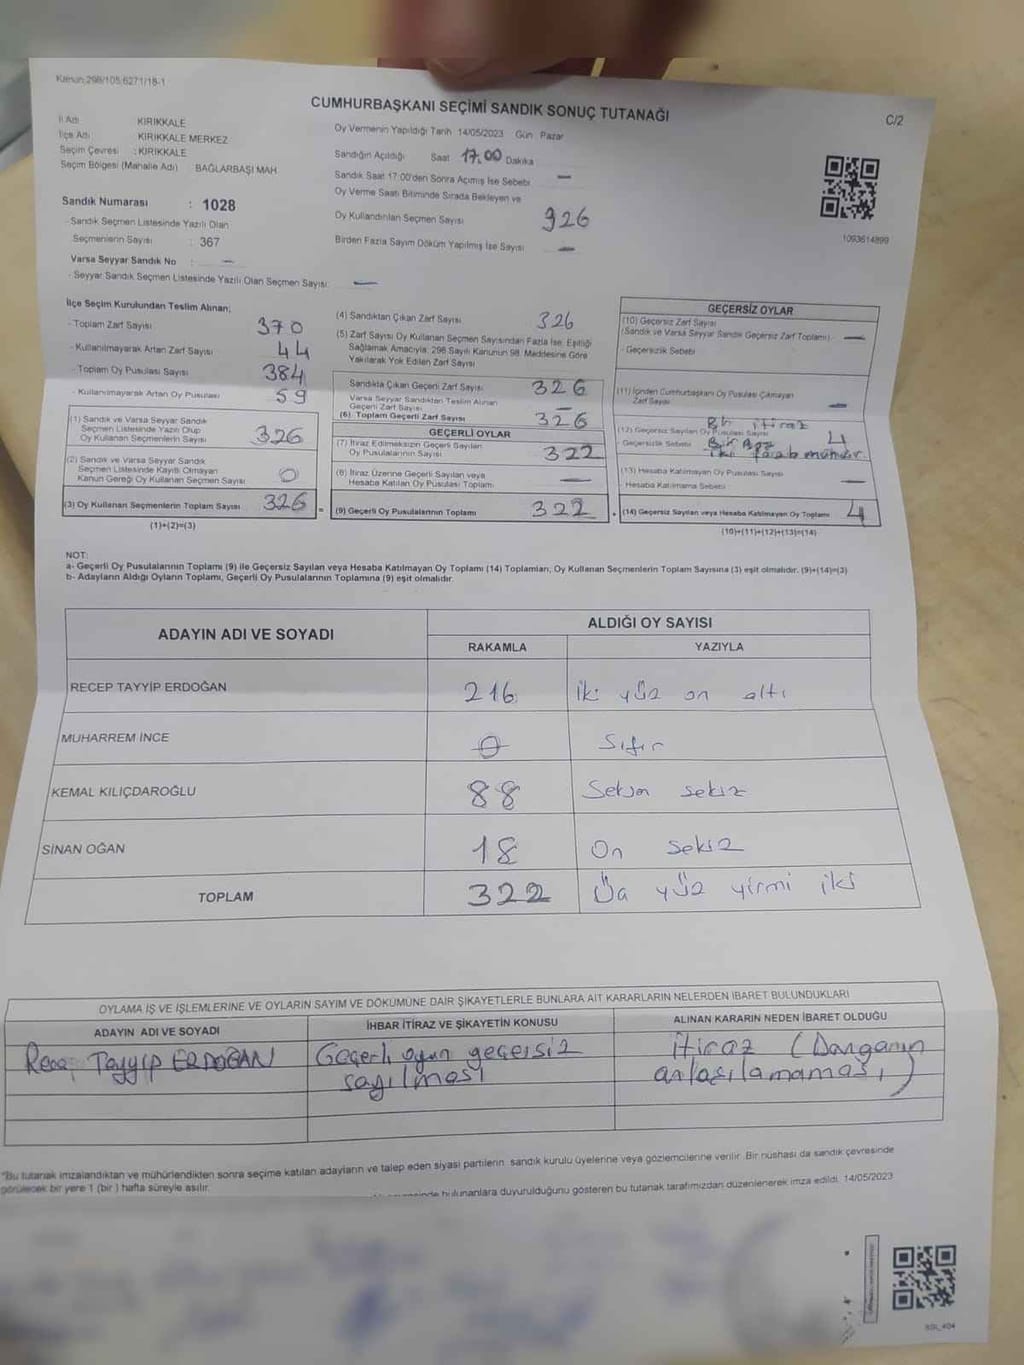 Kanun:298/105,6271/18-1
CUMHURBAŞKANI SEÇİMİ SANDIK SONUÇ TUTANAĞI
C/2
İl Adı KIRIKKALE
İlçe Adı KIRIKKALE MERKEZ
Seçim Çevresi : KIRIKKALE
Seçim Bölgesi (Mahalle Adı) BAĞLARBAŞI MAH
Sandık Numarası : 1028
- Sandık Seçmen Listesinde Yazılı Olan
Seçmenlerin Sayısı : 367
Varsa Seyyar Sandık No : —
- Seyyar Sandık Seçmen Listesinde Yazılı Olan Seçmen Sayısı: —
Oy Vermenin Yapıldığı Tarih 14/05/2023 Gün Pazar
Sandığın Açıldığı Saat 17:00 Dakika
Sandık Saat 17:00'den Sonra Açılmış İse Sebebi —
Oy Verme Saati Bitiminde Sırada Bekleyen ve
Oy Kullandırılan Seçmen Sayısı 926
Birden Fazla Sayım Döküm Yapılmış İse Sayısı —
1093614899
İlçe Seçim Kurulundan Teslim Alınan;
- Toplam Zarf Sayısı 370
- Kullanılmayarak Artan Zarf Sayısı 44
- Toplam Oy Pusulası Sayısı 384
- Kullanılmayarak Artan Oy Pusulası 59
(1) Sandık ve Varsa Seyyar Sandık
Seçmen Listesinde Yazılı Olup
Oy Kullanan Seçmenlerin Sayısı 326
(2) Sandık ve Varsa Seyyar Sandık
Seçmen Listesinde Kayıtlı Olmayan
Kanun Gereği Oy Kullanan Seçmen Sayısı 0
(3) Oy Kullanan Seçmenlerin Toplam Sayısı 326
(1)+(2)=(3)
(4) Sandıktan Çıkan Zarf Sayısı 326
(5) Zarf Sayısı Oy Kullanan Seçmen Sayısından Fazla İse, Eşitliği
Sağlamak Amacıyla; 298 Sayılı Kanunun 98. Maddesine Göre
Yakılarak Yok Edilen Zarf Sayısı
Sandıkta Çıkan Geçerli Zarf Sayısı 326
Varsa Seyyar Sandıktan Teslim Alınan
Geçerli Zarf Sayısı —
(6) Toplam Geçerli Zarf Sayısı 326
GEÇERLİ OYLAR
(7) İtiraz Edilmeksizin Geçerli Sayılan
Oy Pusulalarının Sayısı 322
(8) İtiraz Üzerine Geçerli Sayılan veya
Hesaba Katılan Oy Pusulası Toplamı —
= (9) Geçerli Oy Pusulalarının Toplamı 322
GEÇERSİZ OYLAR
(10) Geçersiz Zarf Sayısı
(Sandık ve Varsa Seyyar Sandık Geçersiz Zarf Toplamı) —
- Geçersizlik Sebebi
(11) İçinden Cumhurbaşkanı Oy Pusulası Çıkmayan
Zarf Sayısı —
(12) Geçersiz Sayılan Oy Pusulası Sayısı 4
itiraz
Geçersizlik Sebebi
(13) Hesaba Katılmayan Oy Pusulası Sayısı
Hesaba Katılmama Sebebi —
(14) Geçersiz Sayılan veya Hesaba Katılmayan Oy Toplamı 4
(10)+(11)+(12)+(13)=(14)
NOT:
a- Geçerli Oy Pusulalarının Toplamı (9) ile Geçersiz Sayılan veya Hesaba Katılmayan Oy Toplamı (14) Toplamları, Oy Kullanan Seçmenlerin Toplam Sayısına (3) eşit olmalıdır. (9)+(14)=(3)
b- Adayların Aldığı Oyların Toplamı, Geçerli Oy Pusulalarının Toplamına (9) eşit olmalıdır.
ADAYIN ADI VE SOYADI
ALDIĞI OY SAYISI
RAKAMLA YAZIYLA
RECEP TAYYİP ERDOĞAN 216 iki yüz on altı
MUHARREM İNCE 0 Sıfır
KEMAL KILIÇDAROĞLU 88 Seksen sekiz
SİNAN OĞAN 18 On sekiz
TOPLAM 322 Üç yüz yirmi iki
OYLAMA İŞ VE İŞLEMLERİNE VE OYLARIN SAYIM VE DÖKÜMÜNE DAİR ŞİKAYETLERLE BUNLARA AİT KARARLARIN NELERDEN İBARET BULUNDUKLARI
ADAYIN ADI VE SOYADI İHBAR İTİRAZ VE ŞİKAYETİN KONUSU ALINAN KARARIN NEDEN İBARET OLDUĞU
Recep Tayyip ERDOĞAN Geçerli oyun geçersiz itiraz (Damganın
sayılması anlaşılamaması)
"Bu tutanak imzalandıktan ve mühürlendikten sonra seçime katılan adayların ve talep eden siyasi partilerin sandık kurulu üyelerine veya gözlemcilerine verilir. Bir nüshası da sandık çevresinde
görülecek bir yere 1 (bir) hafta süreyle asılır.
bulunanlara duyurulduğunu gösteren bu tutanak tarafımızdan düzenlenerek imza edildi. 14/05/2023